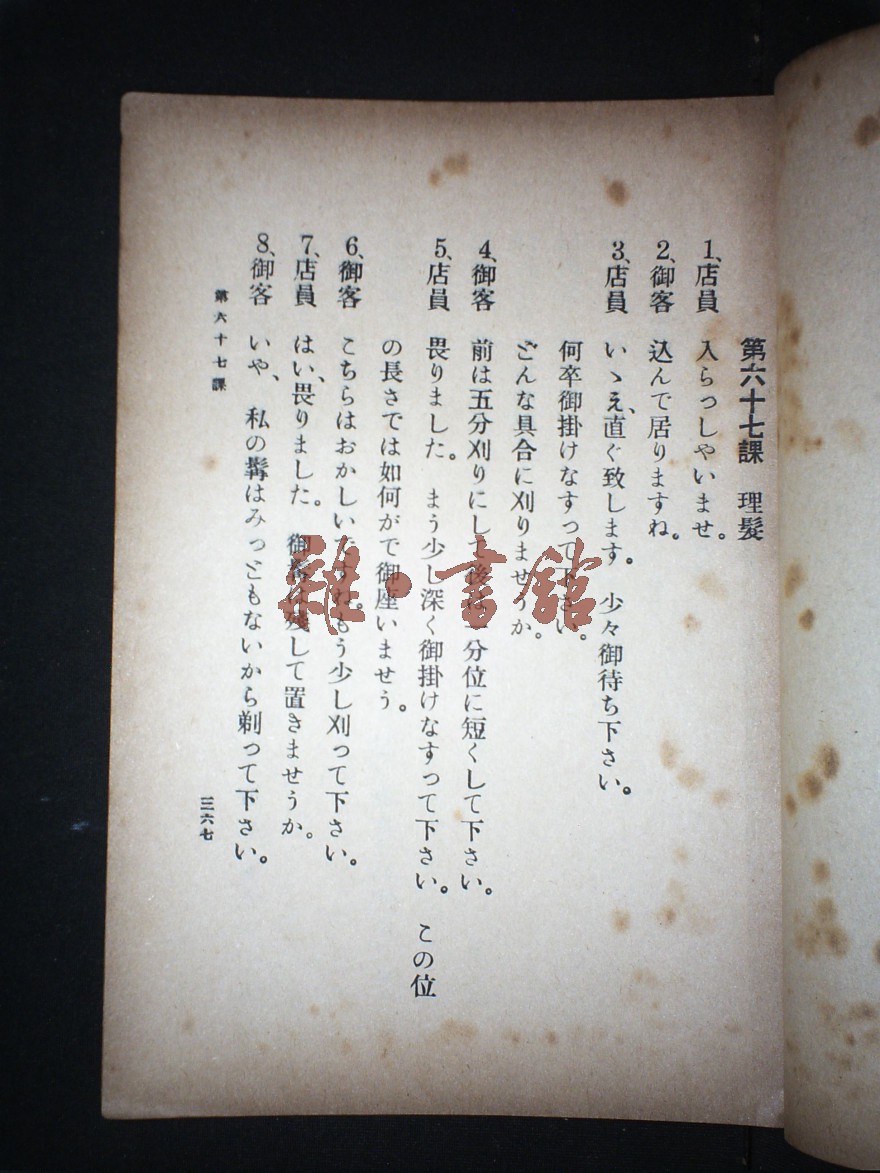 第六十七課　理髮
1、店員　入らっしやいませ。
2、御客　込んで居りますね。
3、店員　いゝえ、直ぐ致します。　少々御待ち下さい。
何卒御掛けなすって下さい。
どんな具合に刈りませうか。
4、御客　前は五分刈りにして後は一分位に短くして下さい。
5、店員　畏りました。　まう少し深く御掛けなすって下さい。　この位
の長さでは如何がで御座いませう。
6、御客　こちらはおかしいですね。もう少し刈って下さい。
7、店員　はい、畏りました。　御髯は殘して置きませうか。
8、御客　いや、私の髯はみっともないから剃って下さい。
第六十七課
三六七
雜·書館